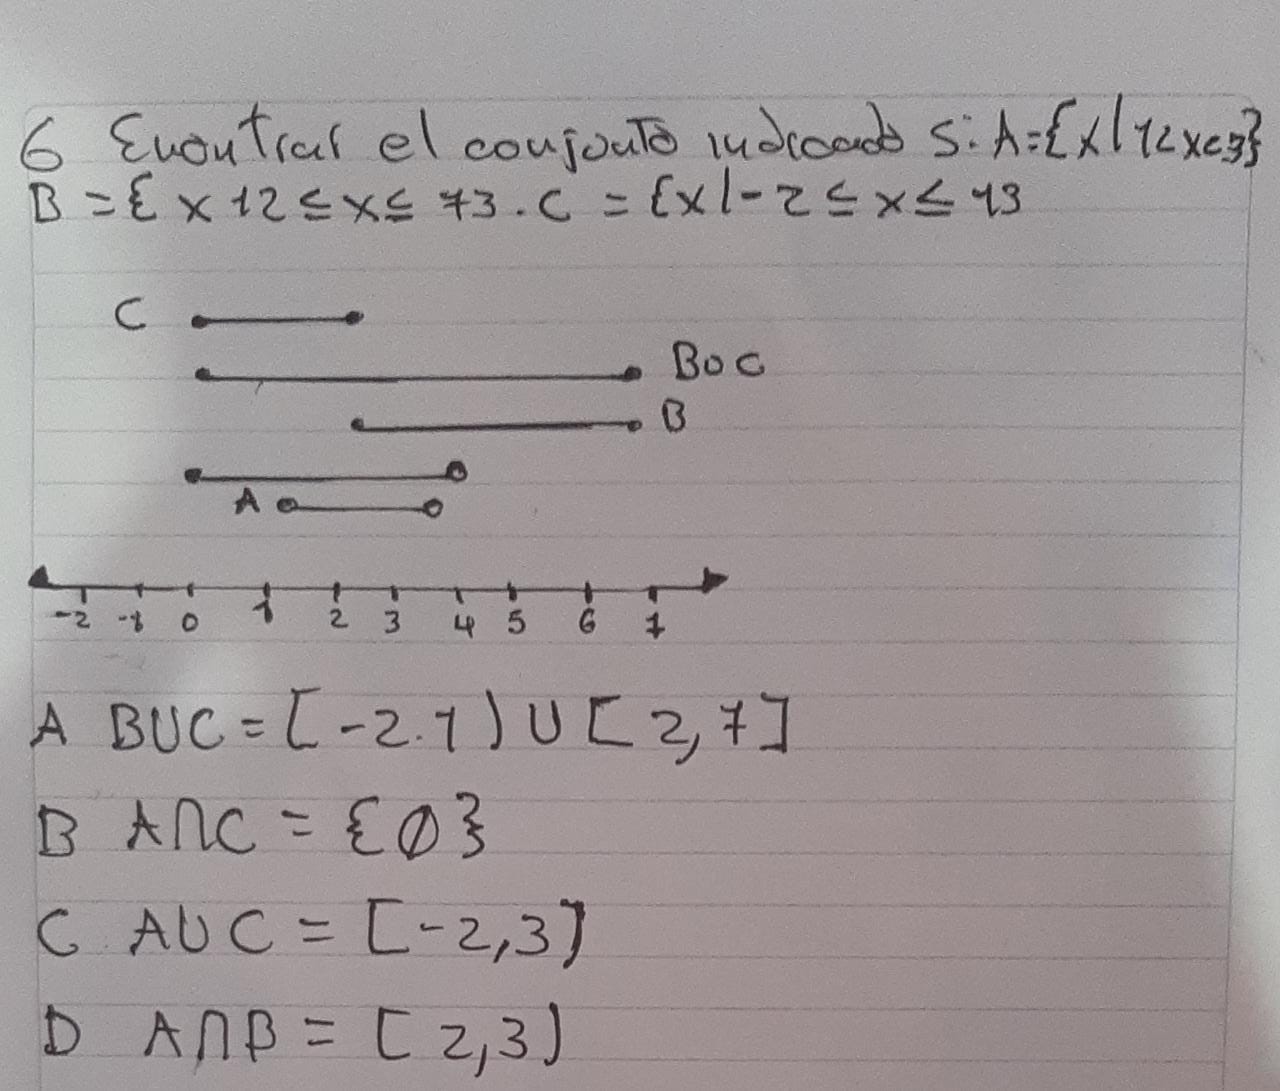 6 Encontrar el conjunto indicado Si A={x|1<x<3}
B={x 12≤x≤73. C={x|-2≤x≤13
C
BUC
B
A
-2 -1 0 1 2 3 4 5 6 7
A BUC=[-2.1)U[2,7]
B A∩C={∅}
C AUC=[-2,3)
D A∩B=[2,3)